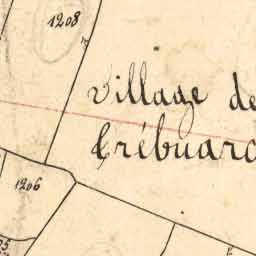 1208
Village de
Trébuarc
1206